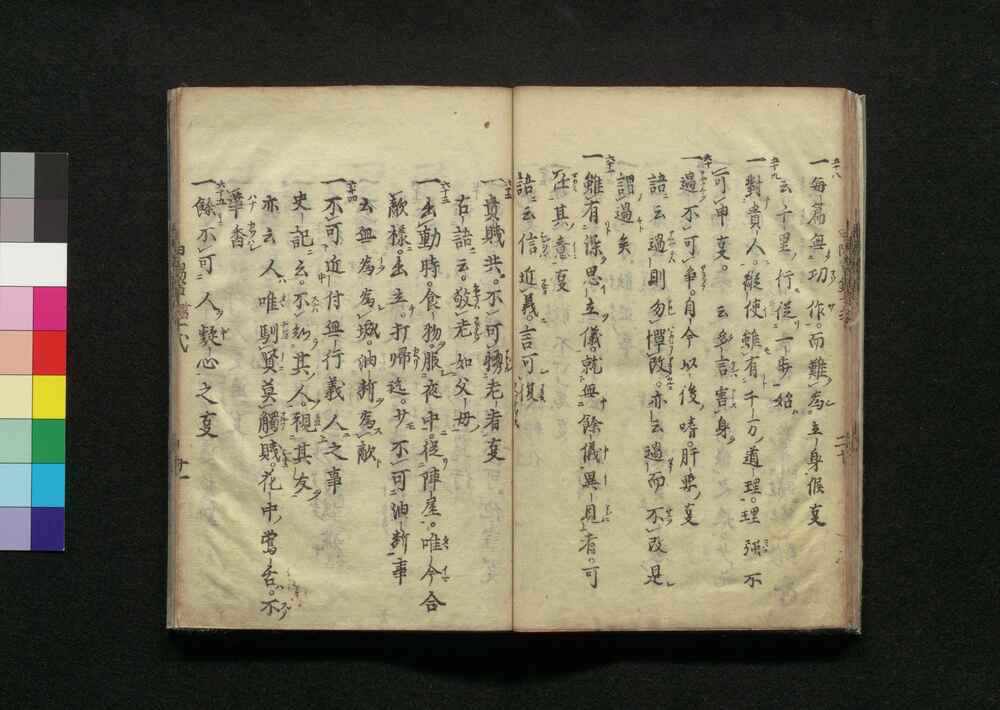 五十八
一每篇無功作。而難為立身候叓
云千里行從一步始
五十九
一對貴人。縱使雖有千万道理。理強不
可申叓。云多言害身
六十
一過不可爭。自今以後嗜。肝要叓
語云過則勿憚改。亦云過而不改是
謂過矣
六十一
一雖有深思立儀。就無餘儀異見者。可
任其意叓
語云信近義。言可復
六十二
一貴賤共。不可轉老者叓
古語云。敬老如父母
六十三
一出動時。食物。服夜中。從陣屋。唯今合
敵樣。出立。打帰迄。少不可油断事
云無為為城。油断為敵
六十四
一不可近付無行義人之事
史記云。不知其人。視其友
亦云人唯馴賢莫觸賤。花中鶯舌。不
華香
六十五
一餘不可人凝心之叓